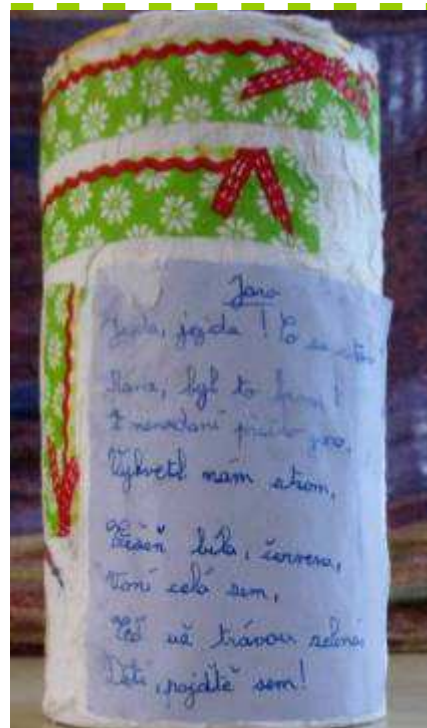 Jaro
Jejda, jejda! Co se
byl to
Z nenadání přišlo jaro,
Vykvetl nám strom,
bílá, červená,
Voní celá zem,
Teď už trávou zelenou
Děti, pojďte sem!